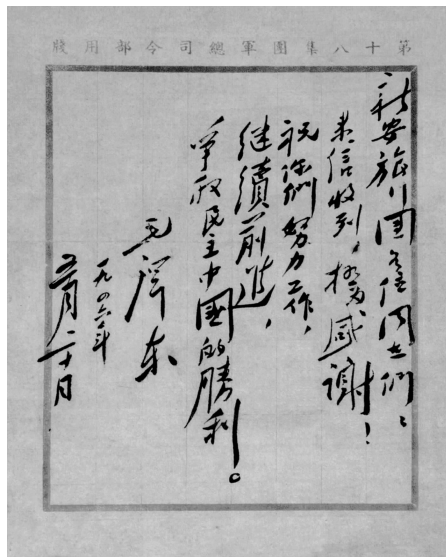 第十八集團軍總司令部用牋
新安旅行團同志們：
來信收到，极为感謝！
祝你們努力工作，
继續前進，
爭取民主中國的勝利。
毛澤东
一九四六年
五月二十日